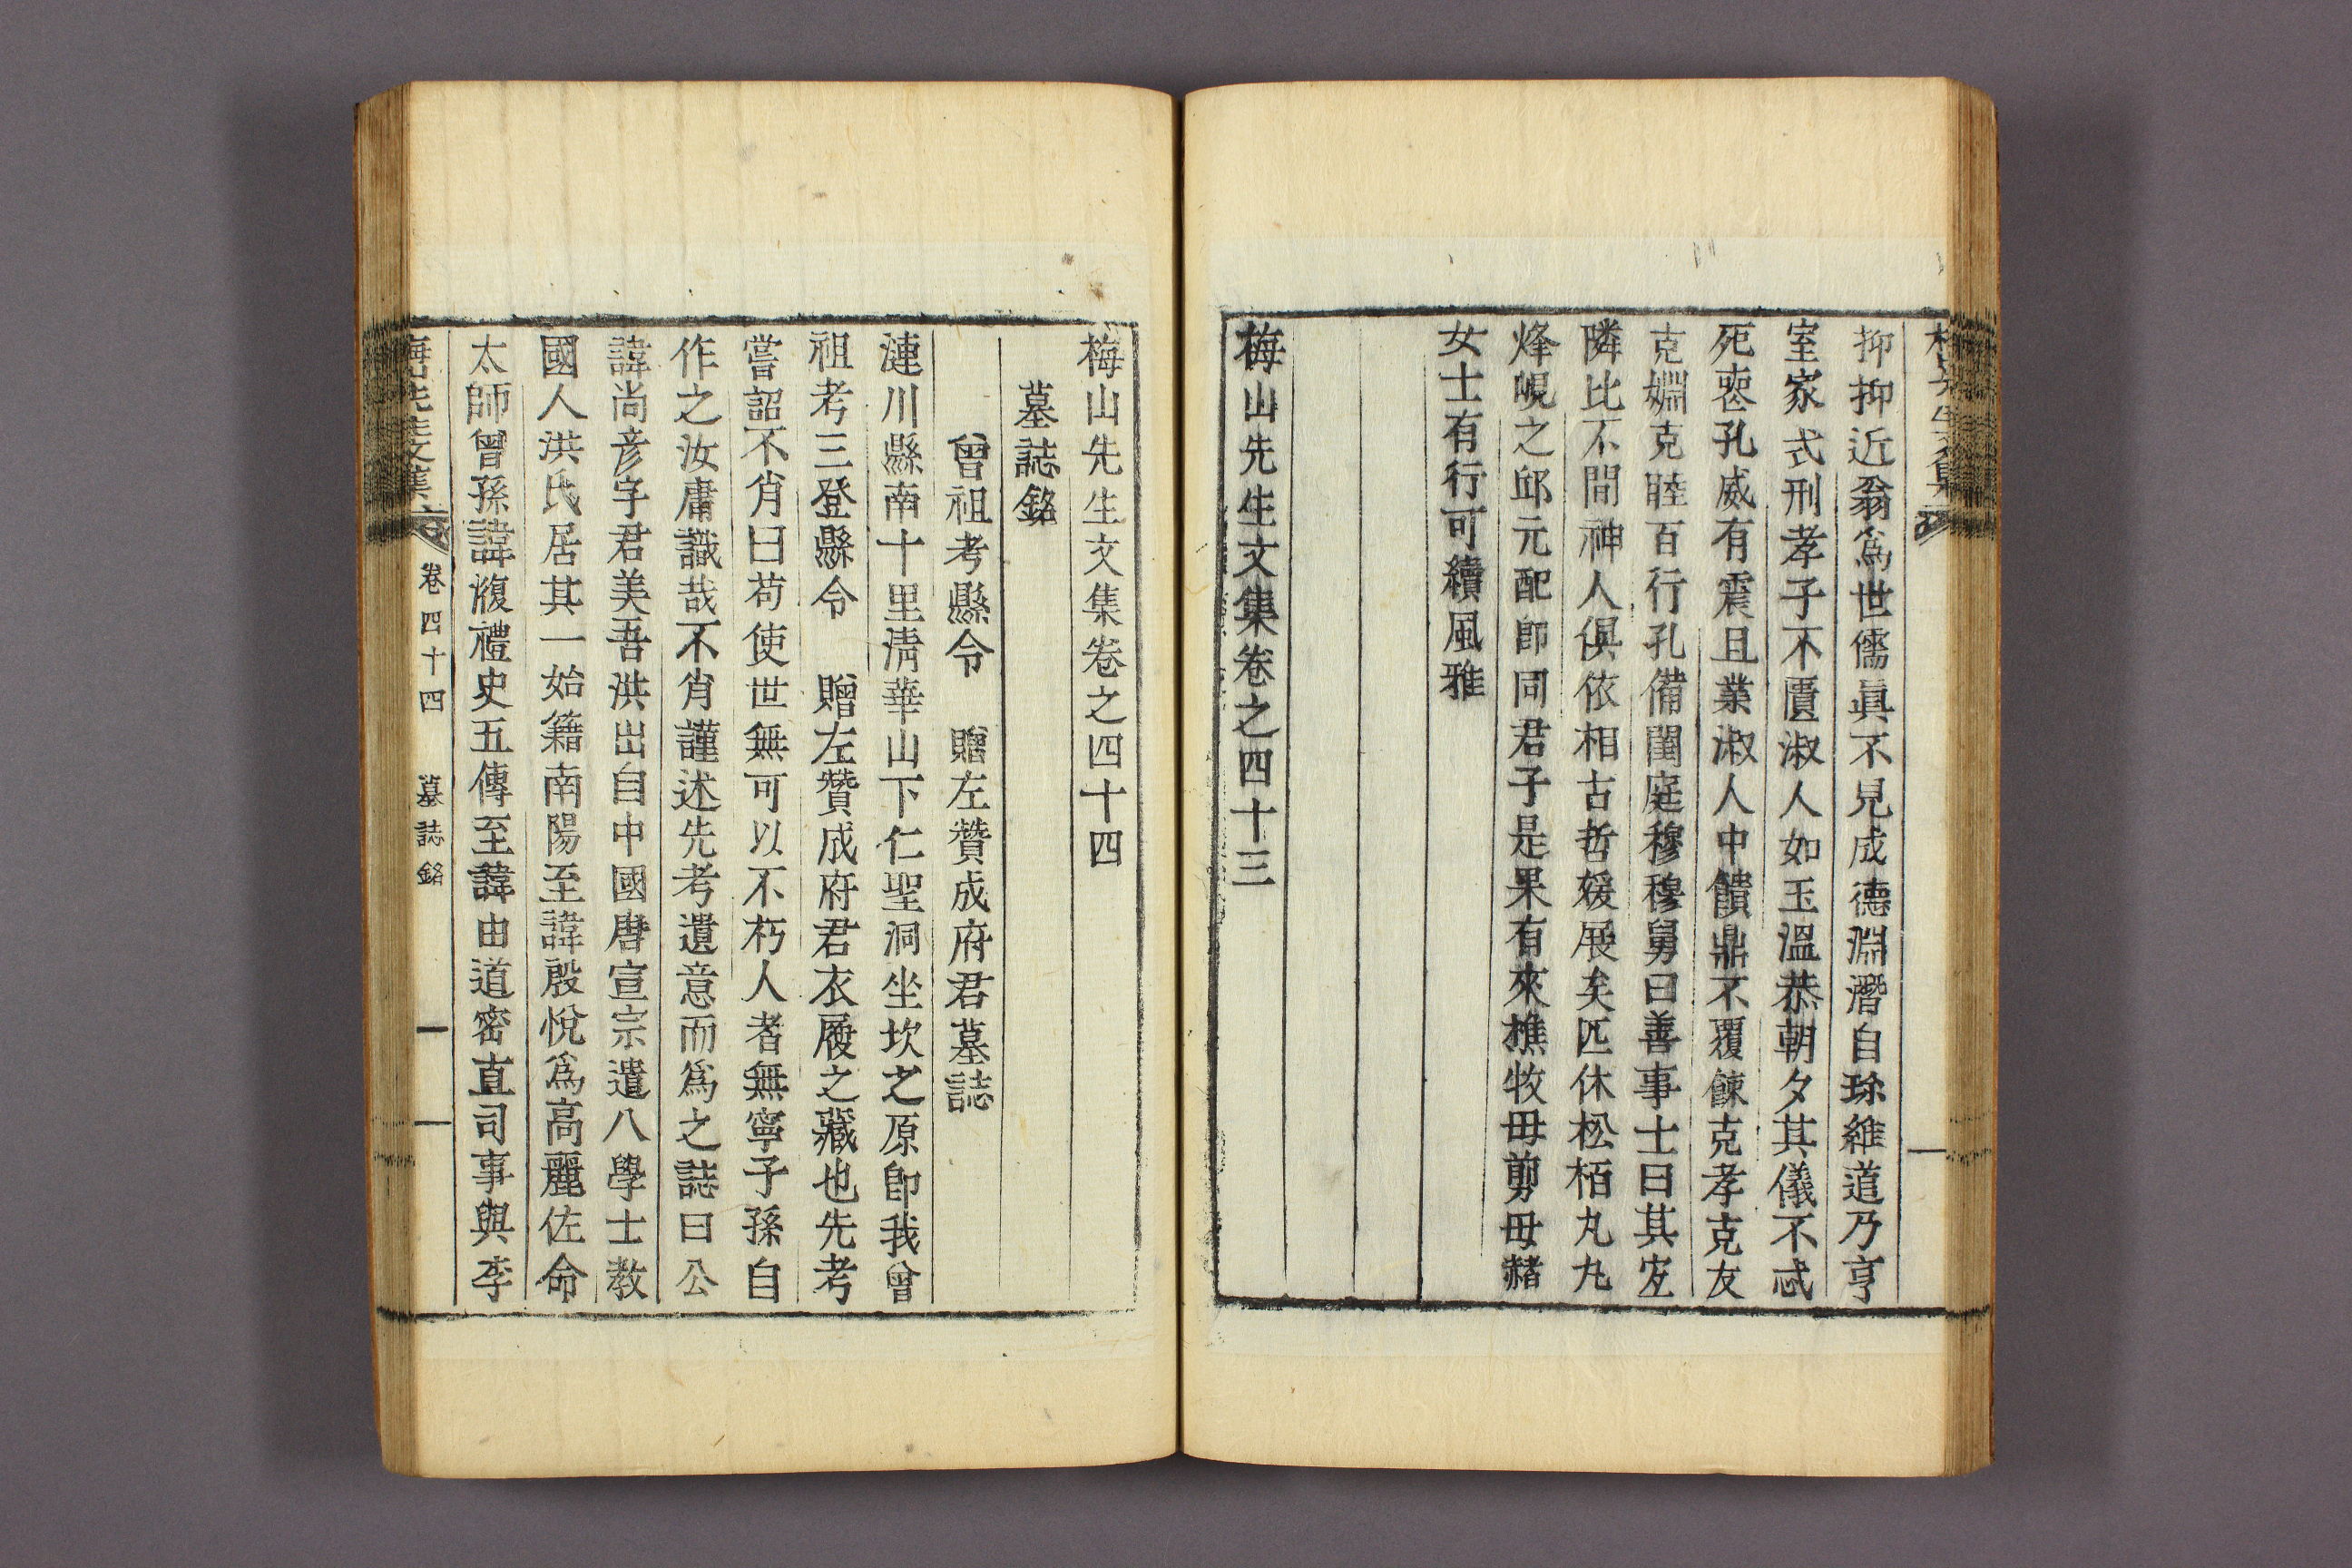 抑抑近翁爲世儒眞不見成德淵潛自珎維道乃亨
室家式刑孝子不匱淑人如玉溫恭朝夕其儀不忒
死喪孔威有震且業淑人中饋鼎不覆餗克孝克友
克婣克睦百行孔備閨庭穆穆舅曰善事士曰其宐
隣比不間神人俱依相古哲媛展矣匹休松栢丸丸
烽峴之邱元配卽同君子是果有來樵牧毋剪毋赭
女士有行可續風雅
梅山先生文集卷之四十三
梅山先生文集卷之四十四
墓誌銘
曾祖考縣令 贈左贊成府君墓誌
漣川縣南十里淸華山下仁聖洞坐坎之原卽我曾
祖考三登縣令 贈左贊成府君衣履之藏也先考
嘗詔不肖曰苟使世無可以不朽人者無寧子孫自
作之汝庸識哉不肖謹述先考遺意而爲之誌曰公
諱尙彥字君美吾洪出自中國唐宣宗遣八學士教
國人洪氏居其一始籍南陽至諱殷悅爲高麗佐命
太師曾孫諱㵤禮史五傳至諱由道密直司事與李
梅山先生文集 卷四十四 墓誌銘 一